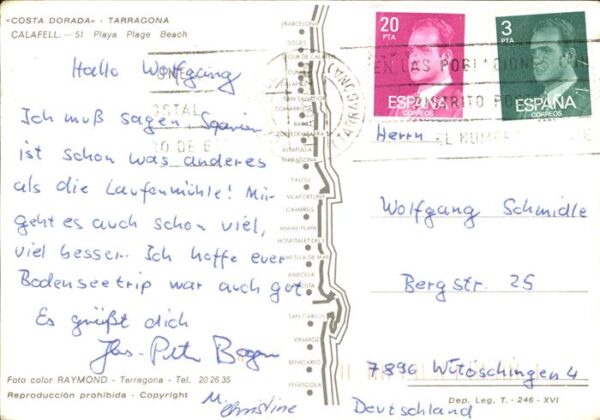 «COSTA DORADA» - TARRAGONA
CALAFELL. — 51 Playa Plage Beach
Hallo Wolfgang
Ich muß sagen, Spanien
ist schon was anderes
als die Laufenmühle! Mir
geht es auch schon viel,
viel besser. Ich hoffe euer
Bodenseetrip war auch gut.
Es grüßt dich
Christine
Foto color RAYMOND - Tarragona - Tel. 20 26 35
Reproducción prohibida - Copyright
BARCELONA
SITGES
SEGUR DE CALAFELL
SAN SALVADOR
TORREDEMBARRA
ALTAFULLA
TARRAGONA
SALOU
VILAFORTUNY
CAMBRILS
MIAMI-PLAYA
HOSPITALET DEL
AMETLLA DE MAR
AMPOLLA
SAN CARLOS
VINAROZ
BENICARLO
PEÑISCOLA
20
PTA
ESPAÑA
CORREOS
3
PTA
ESPAÑA
CORREOS
EN LAS POBLACIONES CON
DISTRITO POSTAL
EL NUMERO
Herrn
Wolfgang Schmidle
Bergstr. 25
7896 Wutöschingen 4
Deutschland
Dep. Leg. T. - 246 - XVI